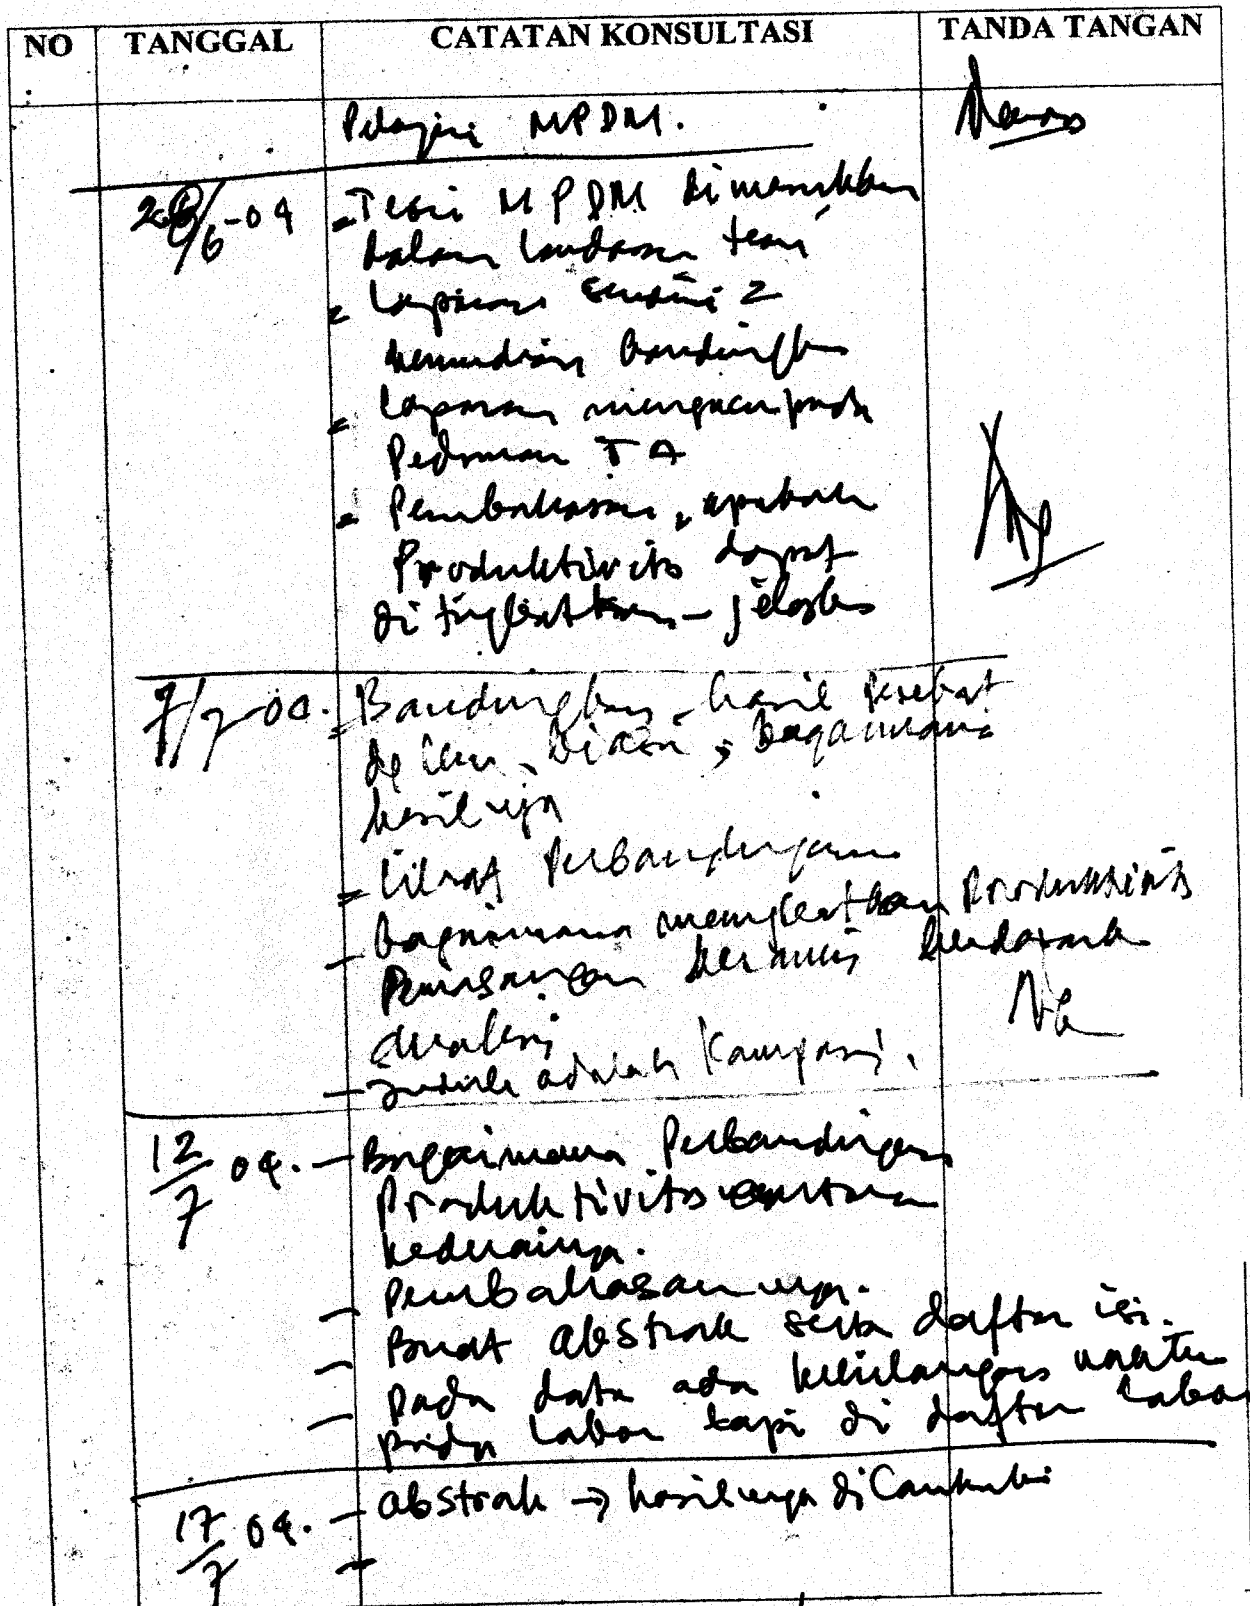 NO TANGGAL CATATAN KONSULTASI TANDA TANGAN
Pelajari MPDM.
28/6-04 - Teori MPDM dimasukkan
dalam landasan teori
- Laporan sendiri 2
kemudian bandingkan
- Laporan mengacu pada
Pedoman TA
- Pembahasan, apakah
Produktivitas dapat
ditingkatkan - jelaskan
7/7-04. - Bandingkan hasil
bagaimana
hasilnya
- Lihat Perbandingan
- bagaimana meningkatkan Produktivitas
Pemasangan keramik
- Judul adalah
12/7 04. - Bagaimana Perbandingan
Produktivitas antara
keduanya.
- Pembahasannya.
- Buat abstrak serta daftar isi.
- Pada data ada kehilangan waktu
pada labor tapi di daftar labor
17/7 04. - abstrak → hasilnya di
-